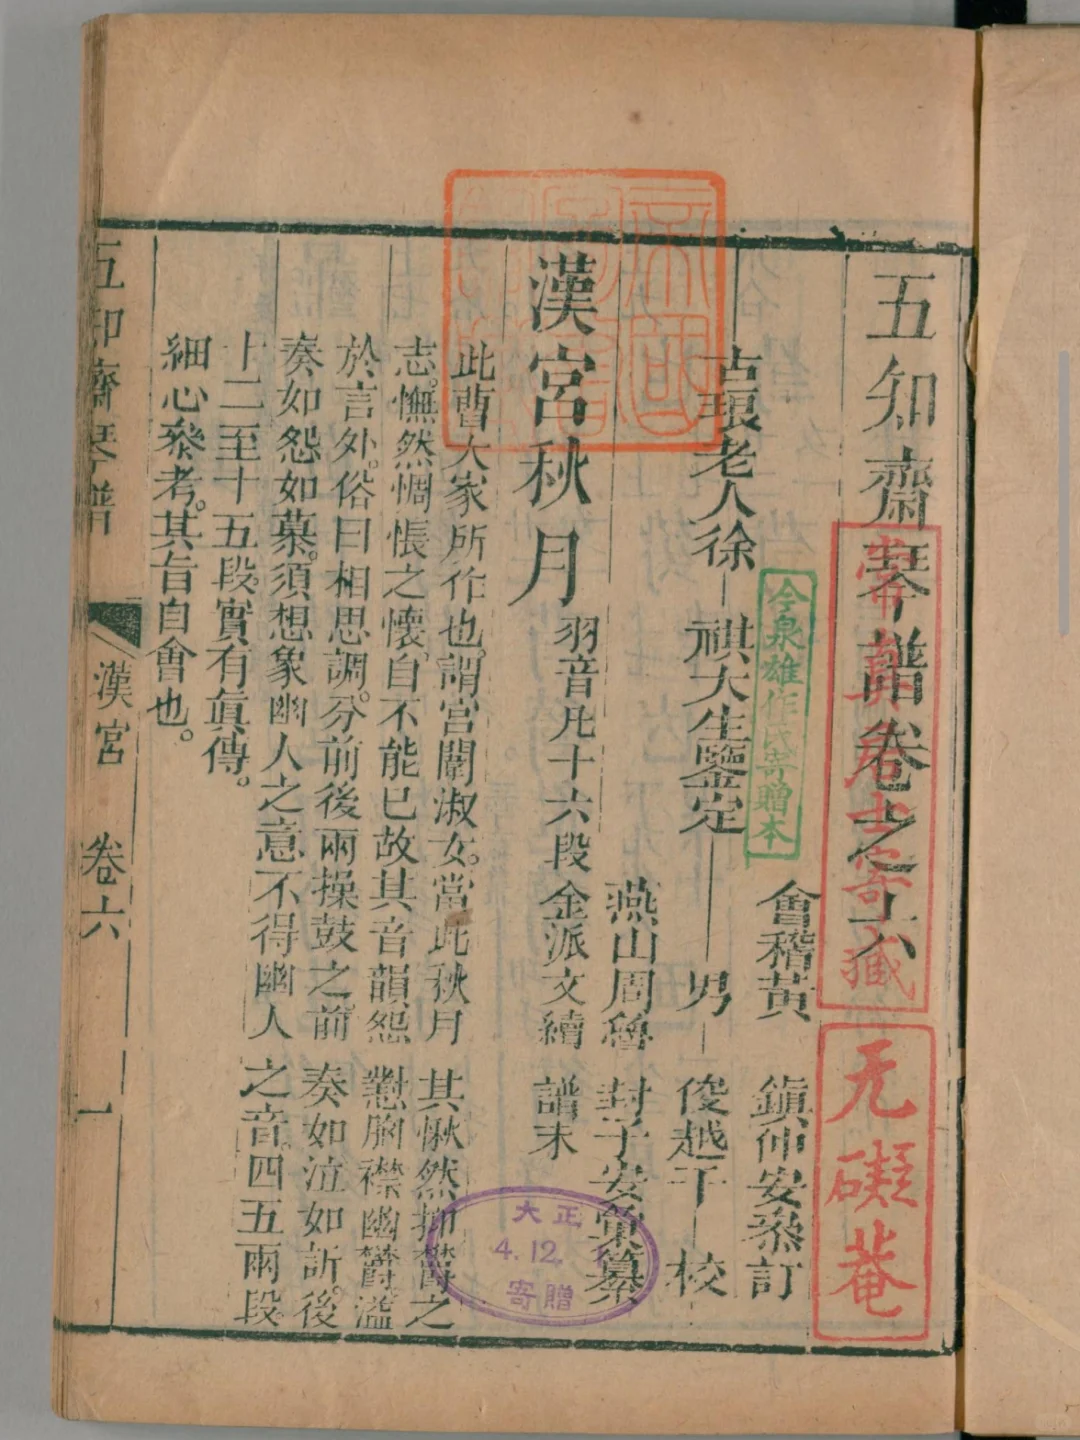 五知齋琴譜卷之六
會稽黃 鎮仲安叅訂
古琅老人徐 祺大生鑒定 男 俊越千 校
燕山周魯 封子安彙纂
漢宮秋月 羽音凡十六段 金派文續 譜末
此曹大家所作也。謂宮闈淑女。當此秋月 其愀然抑鬱之
志。憮然惆悵之懷。自不能已故其音韻怨 懟胸襟幽鬱溢
於言外。俗曰相思調。分前後兩操鼓之前 奏如泣如訴。後
奏如怨如慕。須想象幽人之意不得幽人 之音四五兩段
十二至十五段。實有眞傳。
細心叅考。其旨自會也。
五知齋琴譜 漢宮 卷六 一
今泉雄作氏寄贈本
居士寄藏
无礙菴
大正
4.12.
寄贈